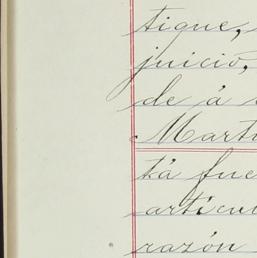 tique,
juicio,
de á
Mart
tá fue
articu
razón